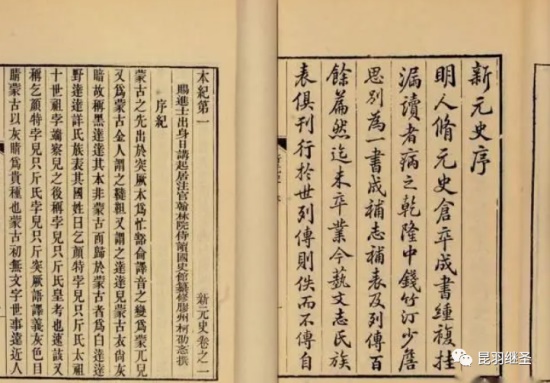 新元史序
明人脩元史倉卒成書緟複挂
漏讀者病之乾隆中錢竹汀少詹
思別為一書成補志補表及列傳百
餘篇然迄未卒業今藝文志氏族
表俱刊行於世列傳則佚而不傳自
本紀第一 新元史卷之一
賜進士出身日講起居注官翰林院侍讀國史館纂修膠州柯劭忞撰
序紀
蒙古之先出於突厥本為忙豁侖譯音之變為蒙兀兒
又為蒙古金人謂之韃靼又謂之達達兒蒙古衣尚灰
暗故稱黑達達其本非蒙古而歸於蒙古者為白達達
野達達詳氏族表其國姓曰乞顏特孛兒只斤氏太祖
十世祖孛端察兒之後稱孛兒只斤氏皇考也速該又
稱乞顏特孛兒只斤氏孛兒只斤突厥語譯義灰色目
睛蒙古以灰睛為貴種也蒙古初無文字世事遠近人
昆羽继圣